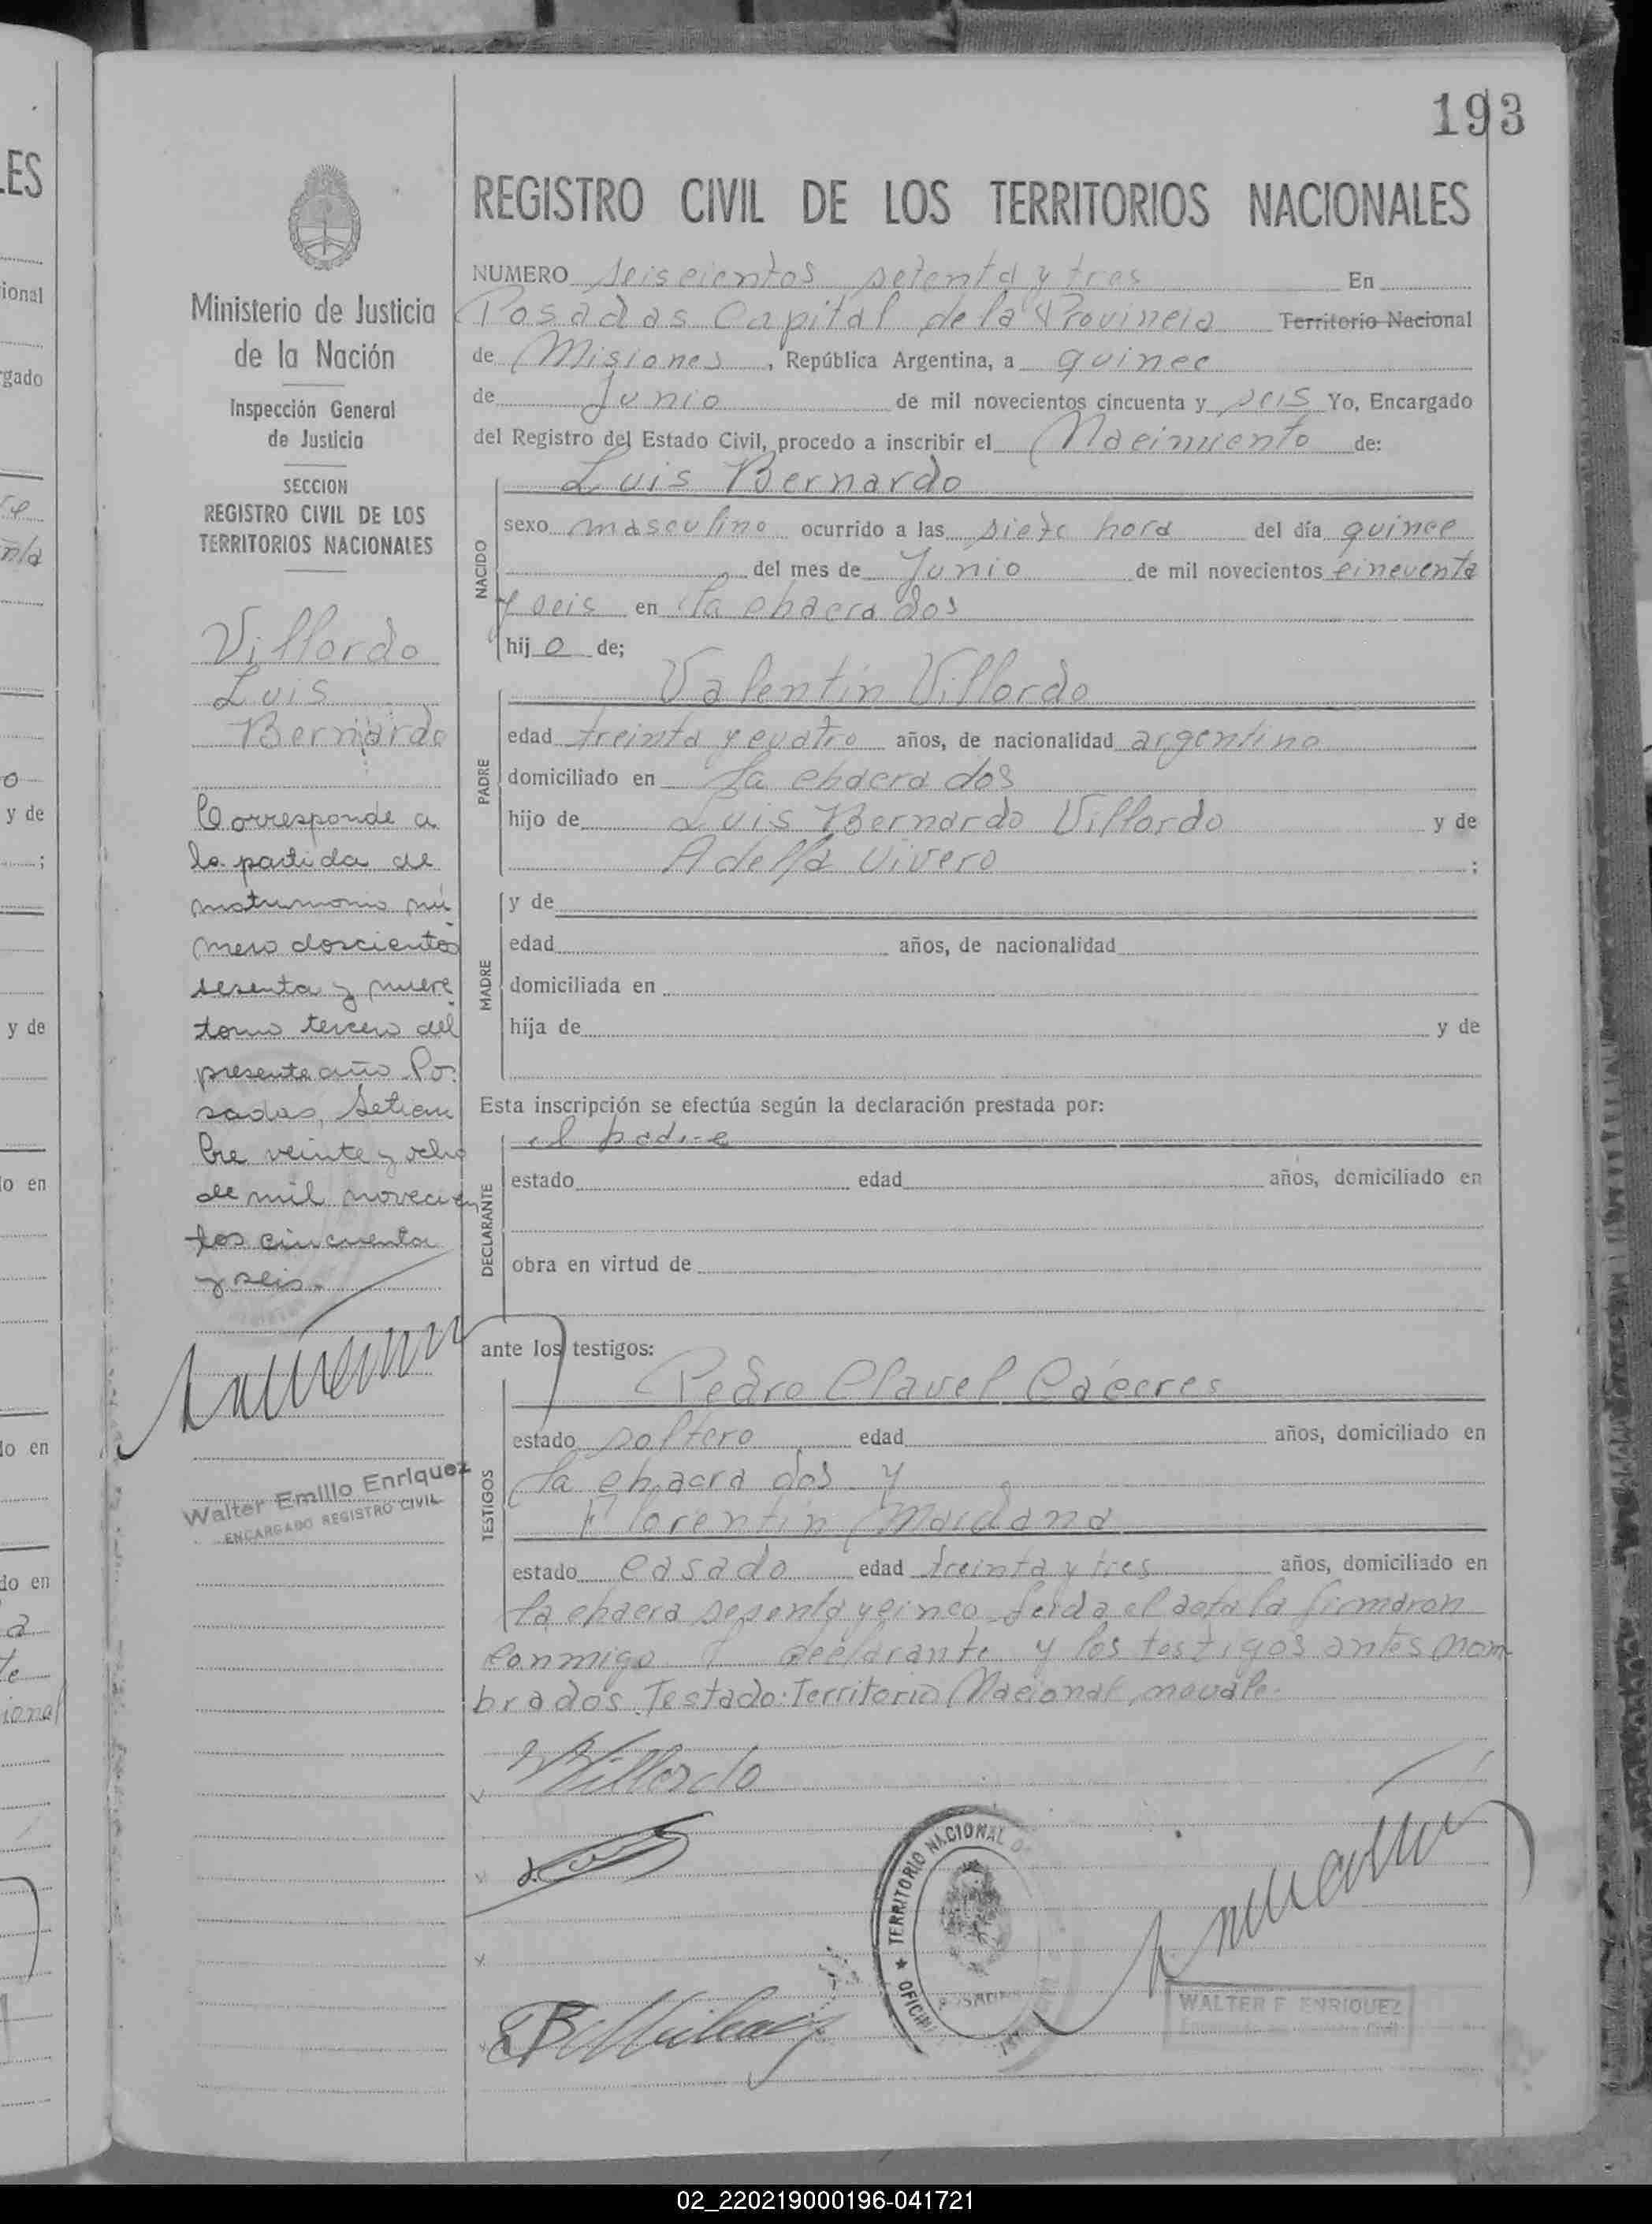 193
REGISTRO CIVIL DE LOS TERRITORIOS NACIONALES
NUMERO seiscientos setenta y tres En
Posadas Capital de la Provincia Territorio Nacional
de Misiones, República Argentina, a quince
de Junio de mil novecientos cincuenta y seis Yo, Encargado
del Registro del Estado Civil, procedo a inscribir el Nacimiento de:
NACIDO
Luis Bernardo
sexo masculino ocurrido a las siete hora del día quince
del mes de Junio de mil novecientos cincuenta
y seis en la chacra dos
hijo de;
PADRE
Valentín Villordo
edad treinta y cuatro años, de nacionalidad argentino
domiciliado en la chacra dos
hijo de Luis Bernardo Villordo y de
Adella Vivero ;
MADRE
y de
edad años, de nacionalidad
domiciliada en
hija de y de
Esta inscripción se efectúa según la declaración prestada por:
DECLARANTE
el padre
estado edad años, domiciliado en
obra en virtud de
ante los testigos:
TESTIGOS
Pedro Clavel Cáceres
estado soltero edad años, domiciliado en
la chacra dos y
Florentín Maidana
estado casado edad treinta y tres años, domiciliado en
la chacra sesenta y cinco leida el acta la firmaron
conmigo el declarante y los testigos antes nom
brados. Testado: Territorio Nacional, no vale.
Villordo
TERRITORIO NACIONAL
OFICINA
POSADAS
WALTER E. ENRIQUEZ
Ministerio de Justicia
de la Nación
Inspección General
de Justicia
SECCION
REGISTRO CIVIL DE LOS
TERRITORIOS NACIONALES
Villordo
Luis
Bernardo
Corresponde a
la partida de
matrimonio nú
mero doscientos
sesenta y nueve
tomo tercero del
presente año. Po-
sadas, Setiem
bre veinte y ocho
de mil novecien
tos cincuenta
y seis.
Walter Emilio Enriquez
ENCARGADO REGISTRO CIVIL
02_220219000196-041721